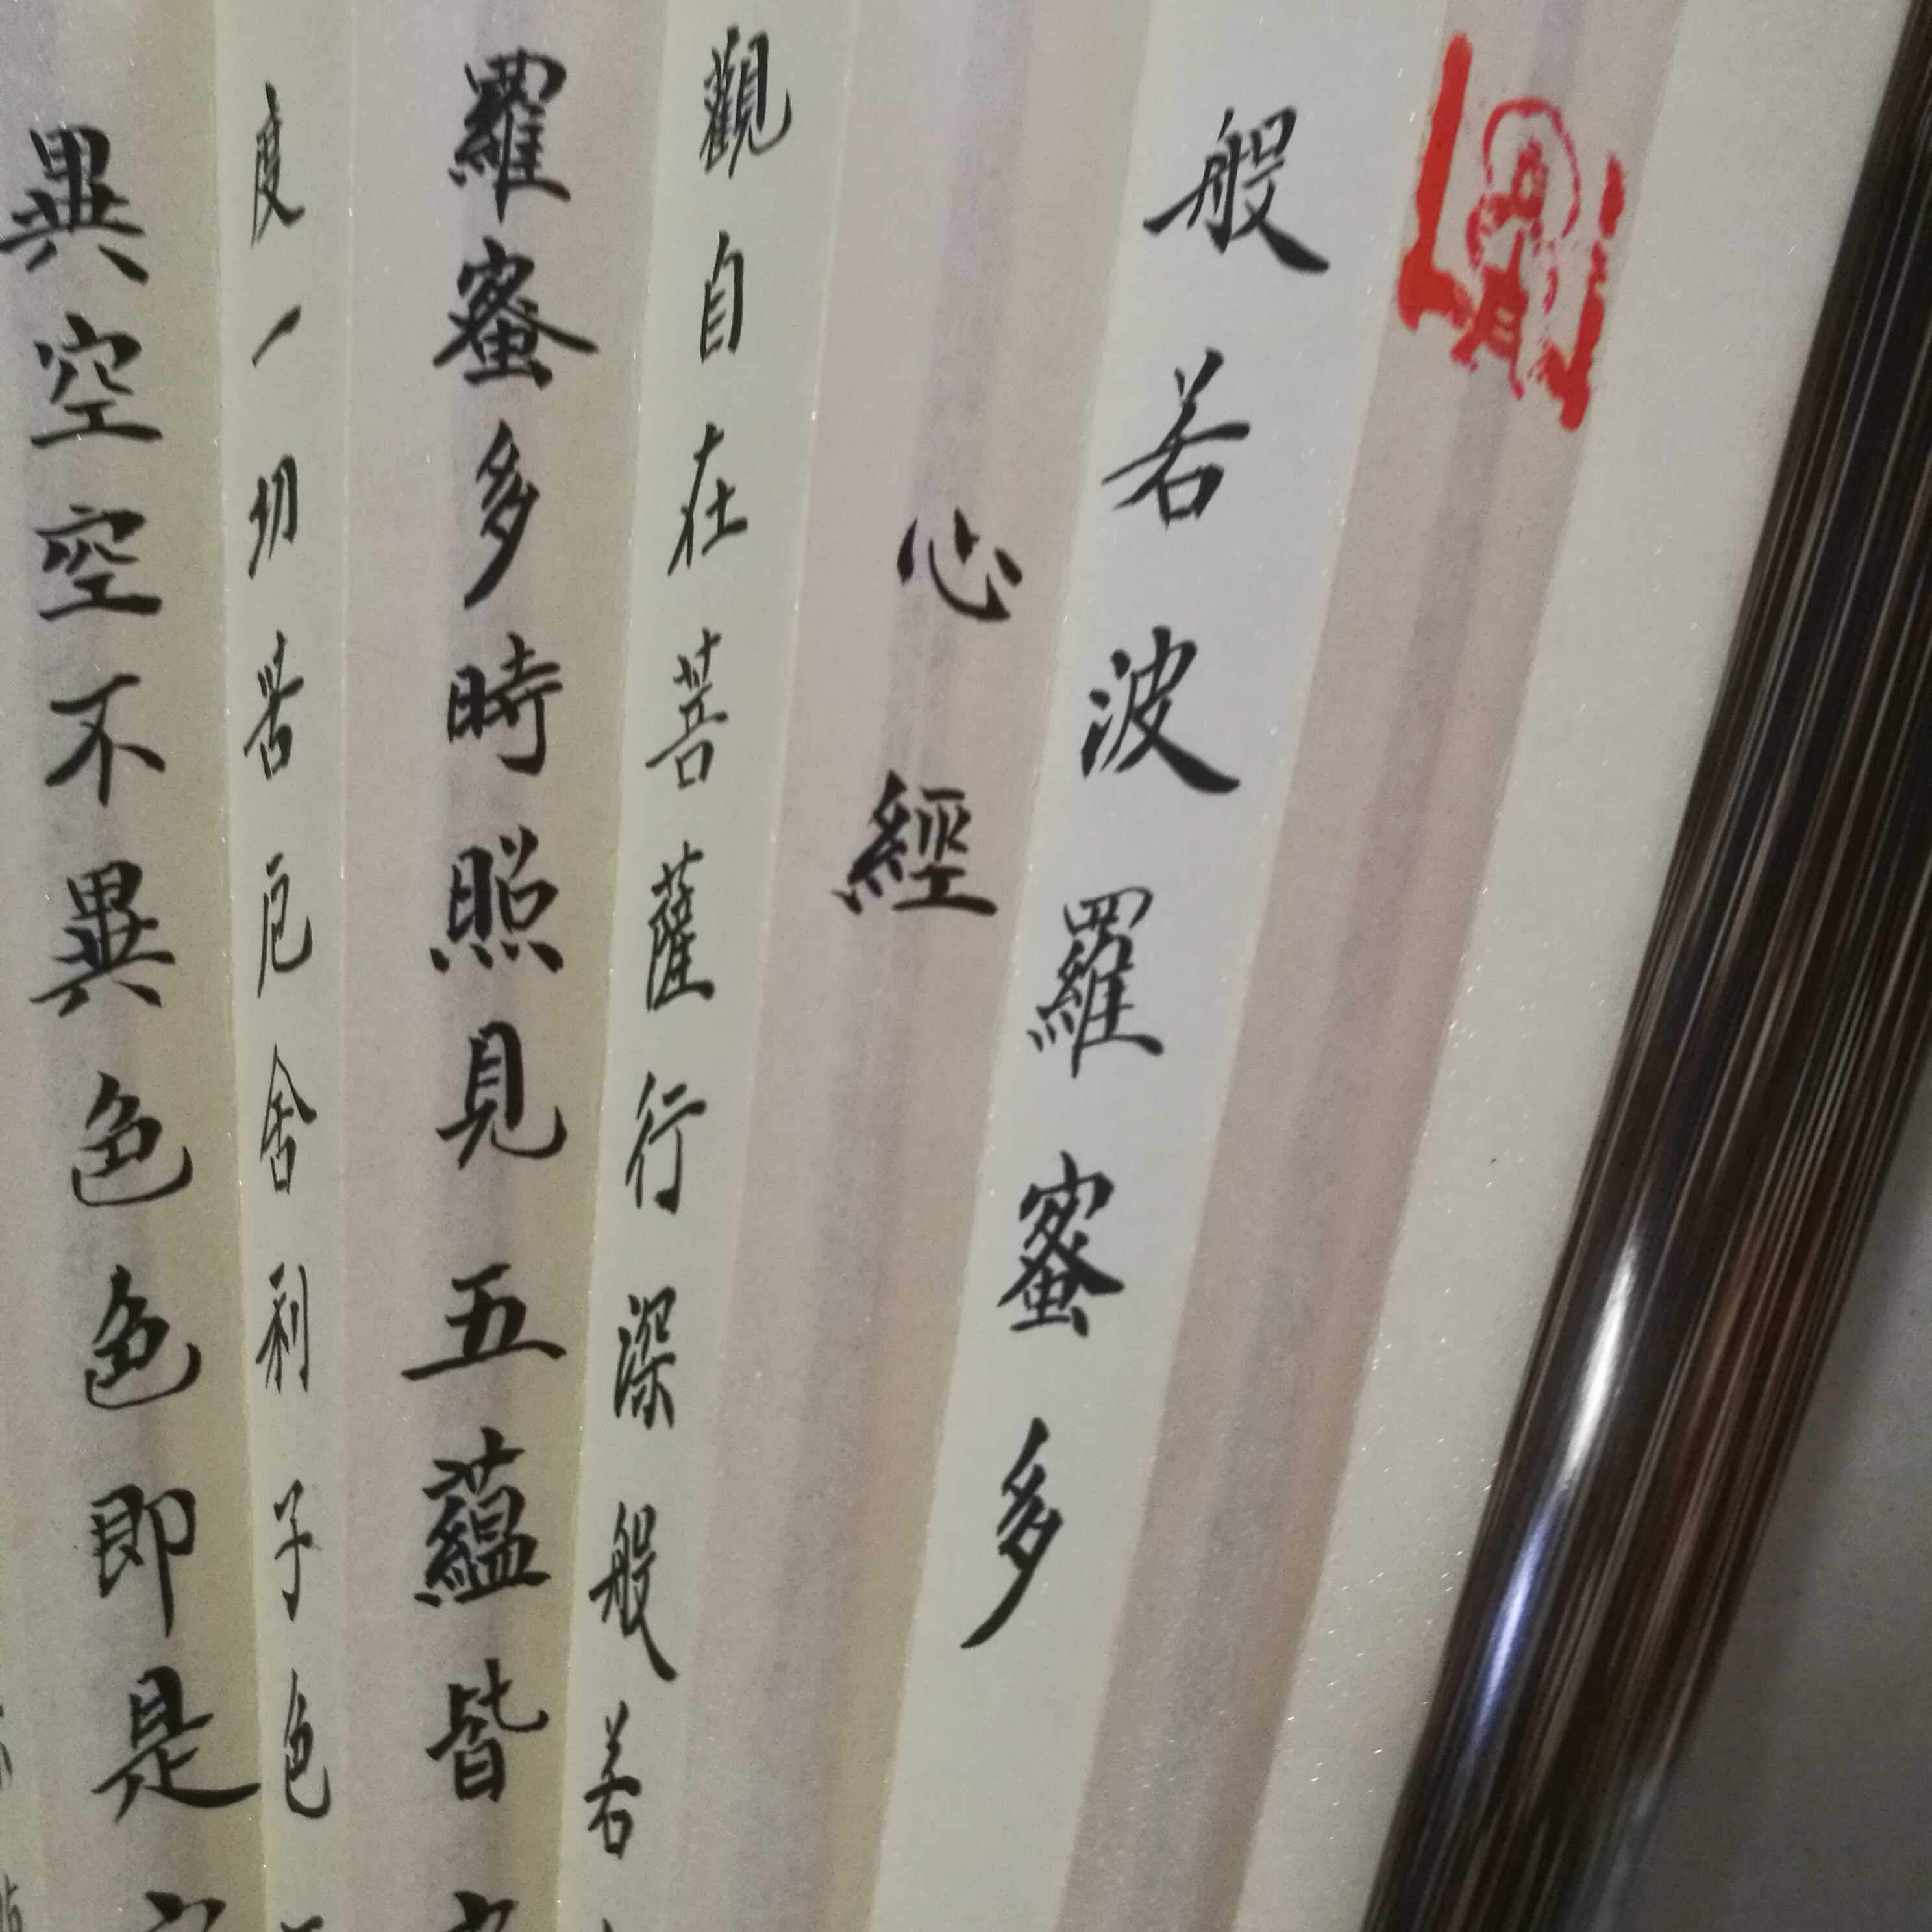 般若波羅蜜多
心經
觀自在菩薩行深般若
羅蜜多時照見五蘊皆
度一切苦厄舍利子色
異空空不異色色即是